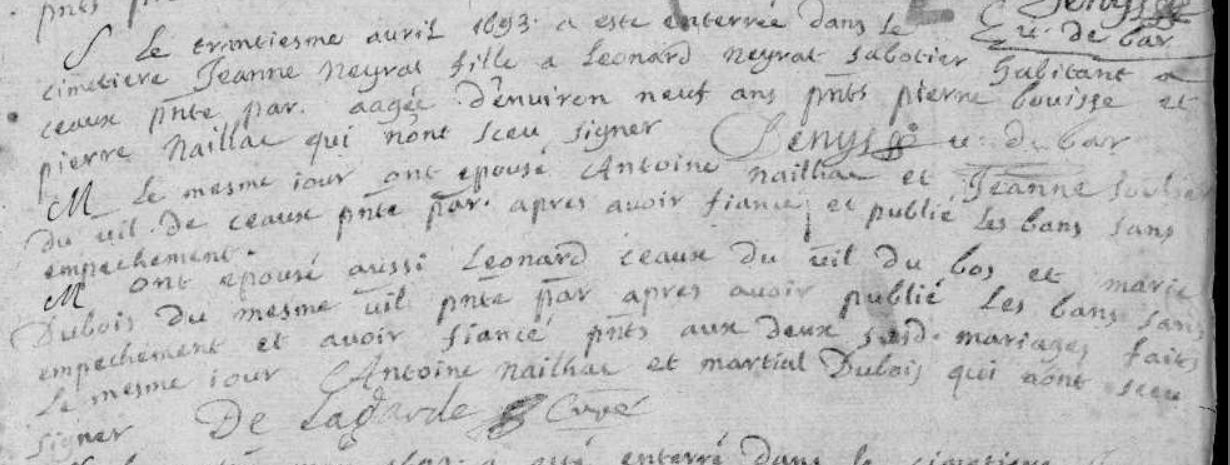 S Le trentiesme auril 1693. a este enterrée dans le
cimetiere Jeanne neyrat fille a Leonard neyrat sabotier habitant a
ceaux pnte par. aagée d'enuiron neuf ans pnts pierre bouisse et
pierre naillac qui nont sceu signer Denys u. de bar
M Le mesme iour ont epousé Antoine nailhac et Jeanne
du uil. de ceaux pnte par. apres auoir fiancé et publié Les bans sans
empechement.
M ont epousé aussi Leonard ceaux du uil du bos et marie
Dubois du mesme uil pnte par apres auoir publié Les bans sans
empechement et auoir fiancé pnts aux deux susd. mariages faits
Le mesme iour Antoine nailhac et martial Dubois qui nont sceu
signer De Lagarde Curé
a esté enterré dans le cimetiere